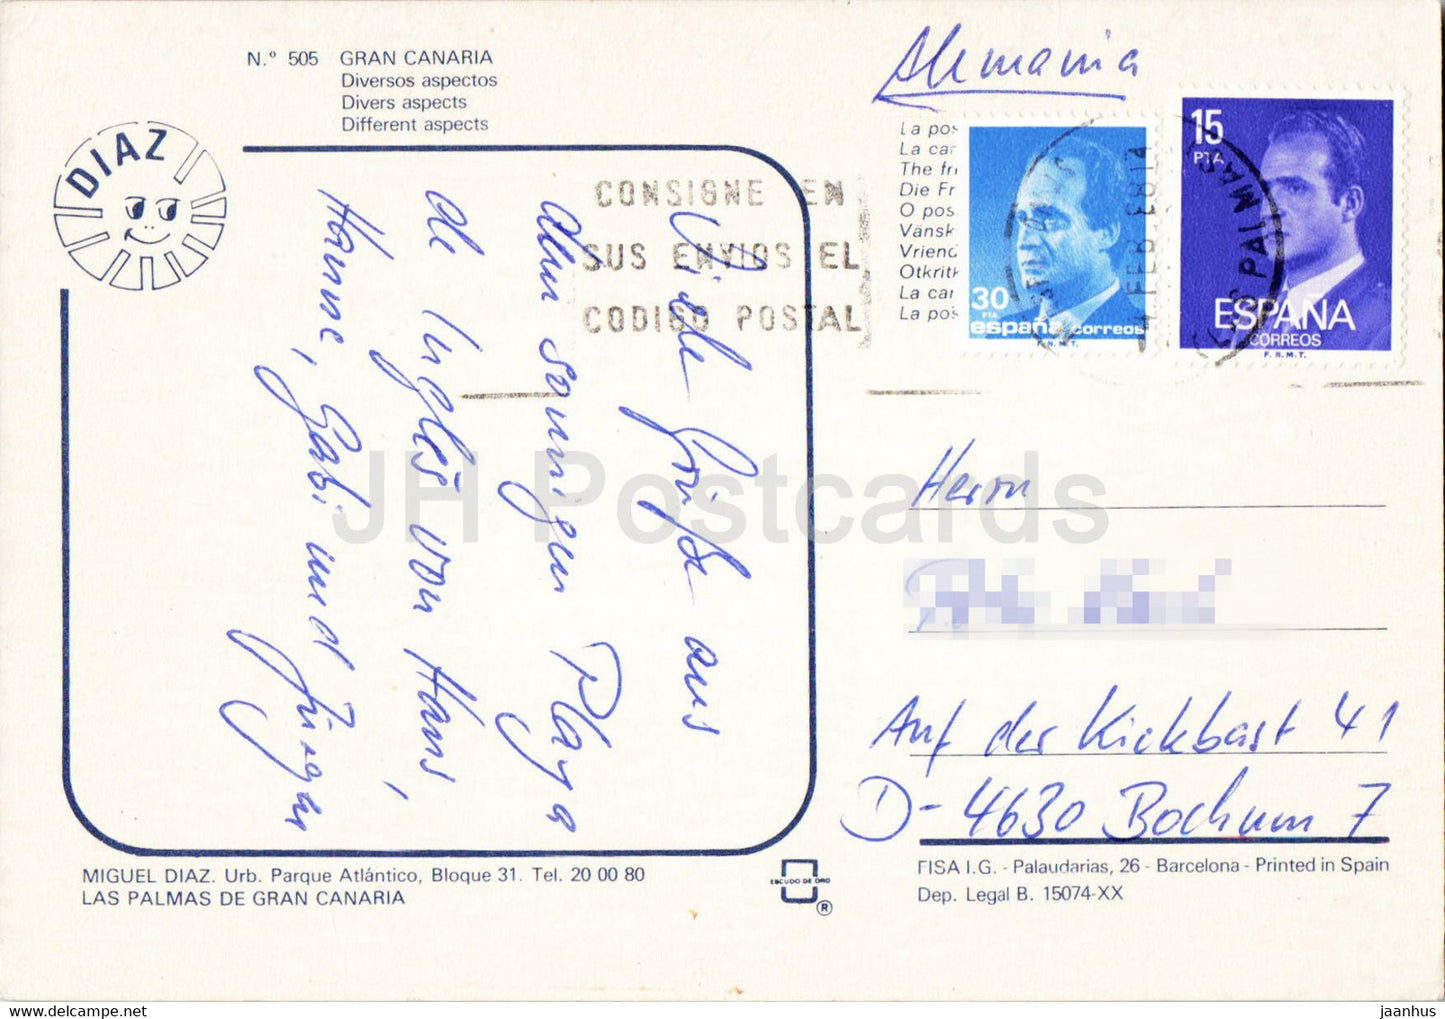 N.º 505 GRAN CANARIA
Diversos aspectos
Divers aspects
Different aspects
DIAZ
Alemania
La pos
La car
The fri
Die Fr
O pos
Vänsk
Vrienc
Otkritk
La car
La pos
30
PTA
españa correos
F.N.M.T.
15
PTA
ESPAÑA
CORREOS
F.N.M.T.
CONSIGNE EN
SUS ENVIOS EL
CODIGO POSTAL
LAS PALMAS
FEB 83
Viele Grüße aus
dem sonnigen Playa
de Inglés von Hans,
Hanne, Gabi und Jürgen
Herrn
Auf der Kickbast 41
D-4630 Bochum 7
MIGUEL DIAZ. Urb. Parque Atlántico, Bloque 31. Tel. 20 00 80
LAS PALMAS DE GRAN CANARIA
ESCUDO DE ORO
®
FISA I.G. - Palaudarias, 26 - Barcelona - Printed in Spain
Dep. Legal B. 15074-XX
JH Postcards
www.delcampe.net
jaanhus